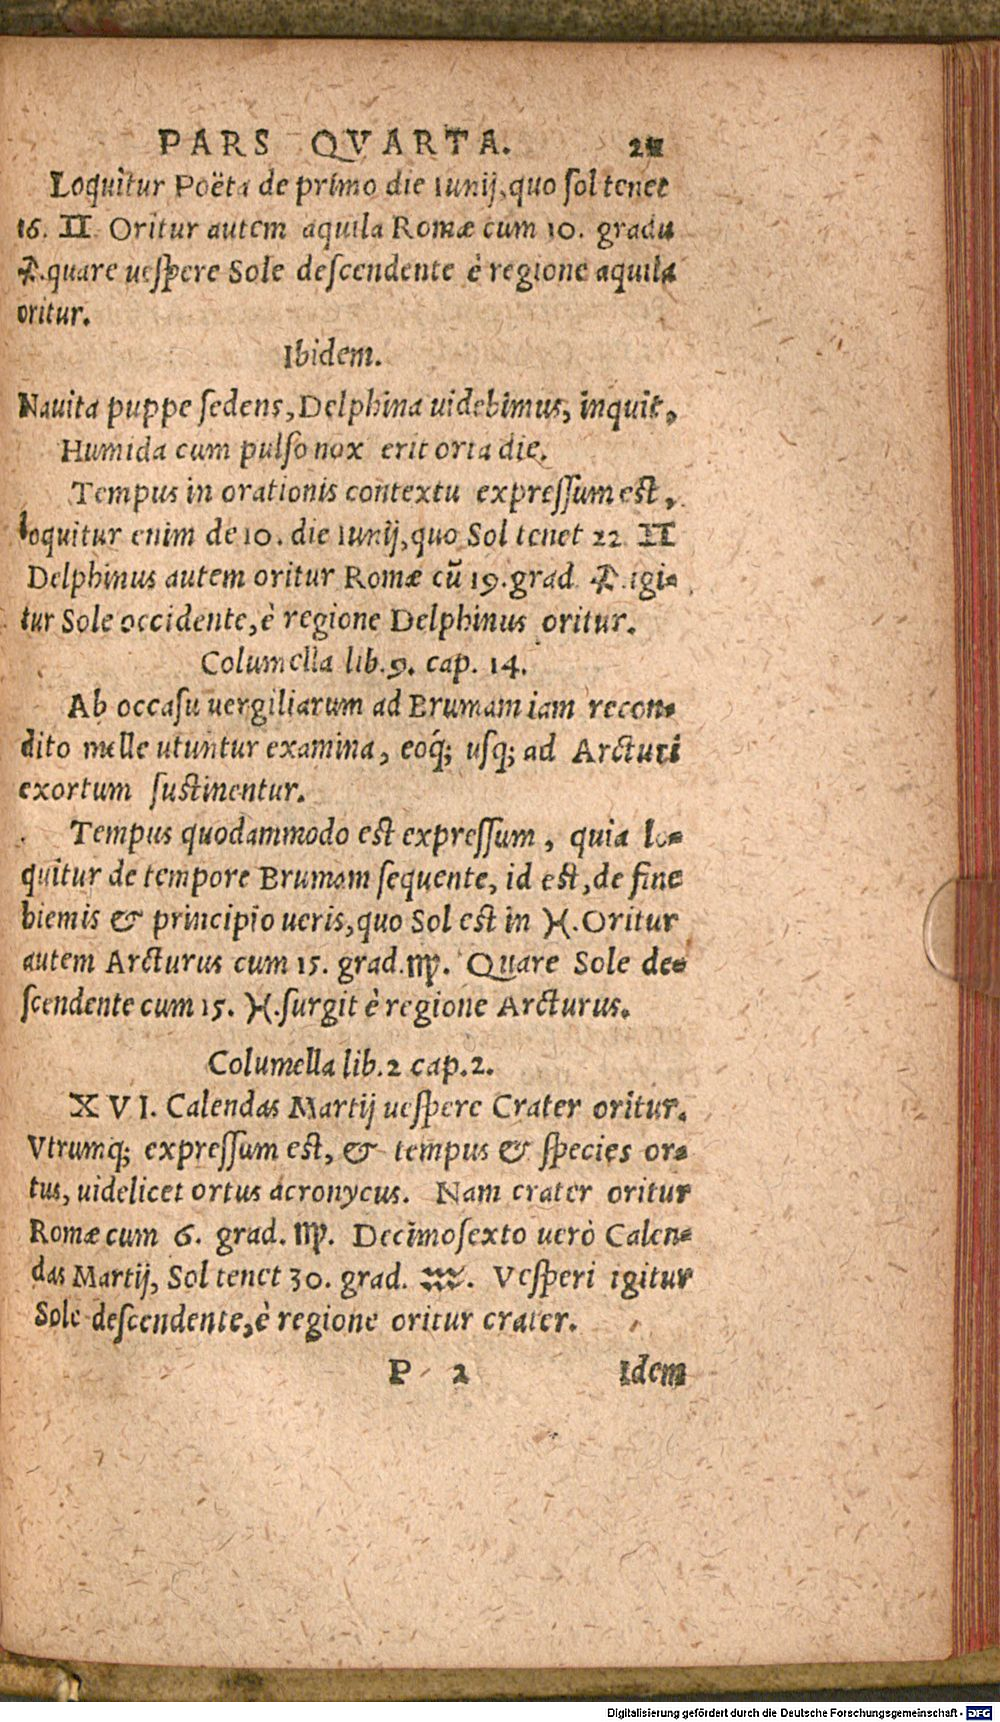 PARS QVARTA.
Loquitur Poëta de primo die Iunij, quo sol tenet
16. ♊ Oritur autem aquila Romæ cum 10. gradu
♐. quare uespere Sole descendente è regione aquila
oritur.
Ibidem.
Nauita puppe sedens, Delphina uidebimus, inquit,
Humida cum pulso nox erit orta die.
Tempus in orationis contextu expressum est,
loquitur enim de 10. die Iunij, quo Sol tenet 22 ♊
Delphinus autem oritur Romæ cũ 19. grad ♐. igi-
tur Sole occidente, è regione Delphinus oritur.
Columella lib. 9. cap. 14.
Ab occasu uergiliarum ad Brumam iam recon-
dito melle utuntur examina, eoq́; usq; ad Arcturi
exortum sustinentur.
Tempus quodammodo est expressum, quia lo-
quitur de tempore Brumam sequente, id est, de fine
hiemis & principio ueris, quo Sol est in ♓. Oritur
autem Arcturus cum 15. grad. ♍. Quare Sole de-
scendente cum 15. ♓. surgit è regione Arcturus.
Columella lib. 2 cap. 2.
XVI. Calendas Martij uespere Crater oritur.
Vtrumq; expressum est, & tempus & species or-
tus, uidelicet ortus acronycus. Nam crater oritur
Romæ cum 6. grad. ♍. Decimosexto uerò Calen-
das Martij, Sol tenet 30. grad. ♒. Vesperi igitur
Sole descendente, è regione oritur crater.
P 2 Idem
Digitalisierung gefördert durch die Deutsche Forschungsgemeinschaft - DFG